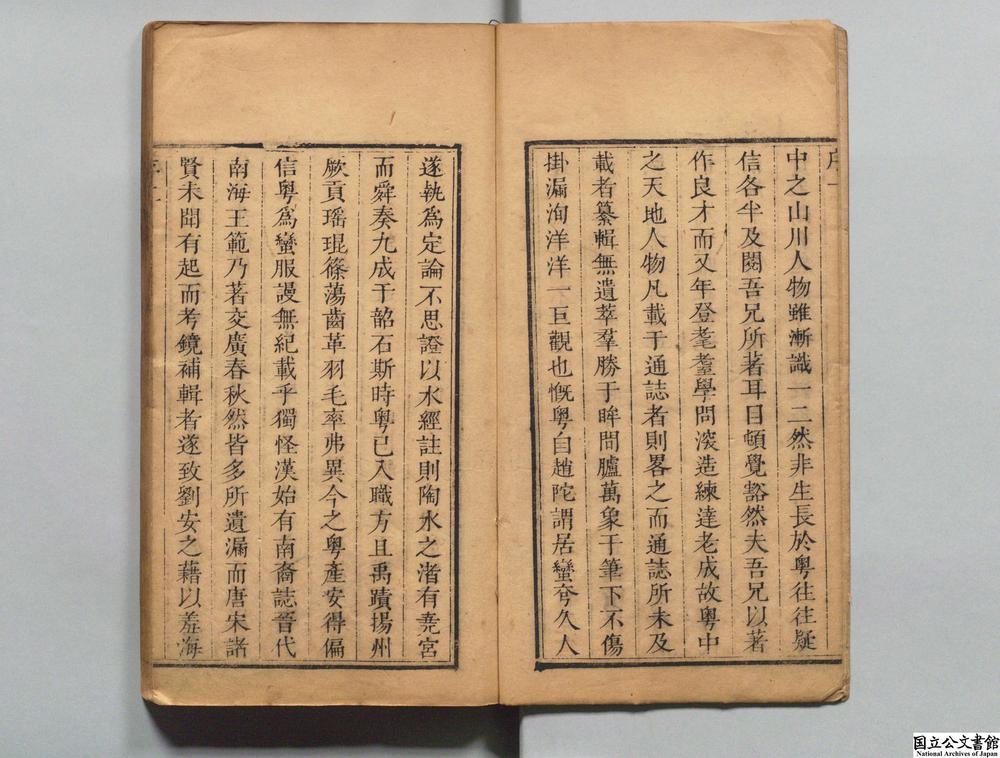 序一
中之山川人物雖漸識一二然非生長於粵往往疑
信各半及閱吾兄所著耳目頓覺豁然夫吾兄以著
作良才而又年登耄耋學問滚造練達老成故粵中
之天地人物凡載于通誌者則畧之而通誌所未及
載者纂輯無遺萃羣勝于眸間臚萬象于筆下不傷
掛漏洵洋洋一巨觀也慨粵自趙陀謂居蠻夸久人
遂執爲定論不思證以水經註則陶水之渚有堯宮
而舜奏九成于韶石斯時粵已入職方且禹蹟揚州
厥貢瑶琨篠蕩齒革羽毛率弗異今之粵產安得偏
信粵爲蠻服謾無紀載乎獨怪漢始有南裔誌晉代
南海王範乃著交廣春秋然皆多所遺漏而唐宋諸
賢未聞有起而考鏡補輯者遂致劉安之藉以羞海
國立公文書館
National Archives of Japan